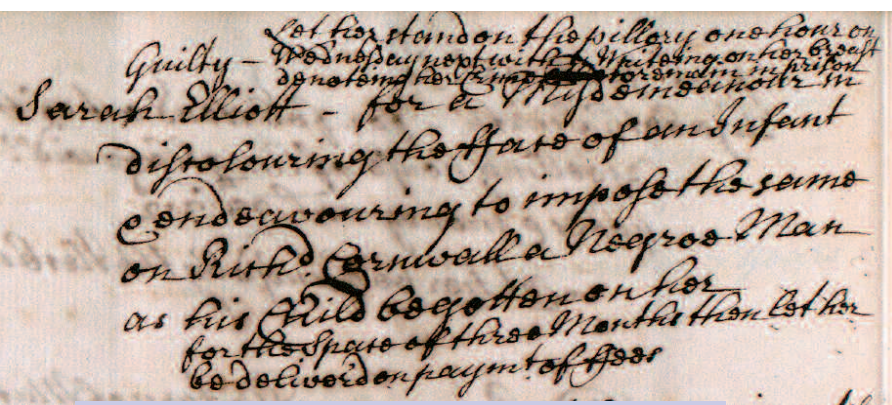 Let her stand on the pillory one hour on
Guilty – Wednesday next with a Writeing on her breast
denoteing her Crime to remain in prison
Sarah Elliott – for a Misdemeanour in
discolouring the fface of an Infant
& endeavouring to impose the same
on Richd. Cornwall a Negroe Man
as his Child begotten on her
for the Space of three Months then let her
be deliverd on paymt of ffees